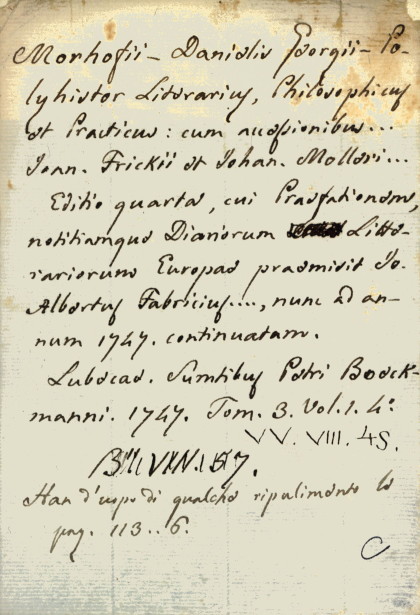 Morhofii - Danielis Georgii - Po-
lyhistor Literarius, Philosophicus
et Practicus: cum accessionibus...
Joan. Frickii et Johan. Molleri...
Editio quarta, cui Praefationem,
notitiamque Diariorum Litte-
rariorum Europae praemisit Jo.
Albertus Fabricius..., nunc ad an-
num 1747. continuatam.
Lubecae. Sumtibus Petri Boeck-
manni. 1747. Tom. 3. Vol. 1. 4°
VV. VIII. 45.
Han d'uopo di qualche ripulimento le
pag. 113..6.
C